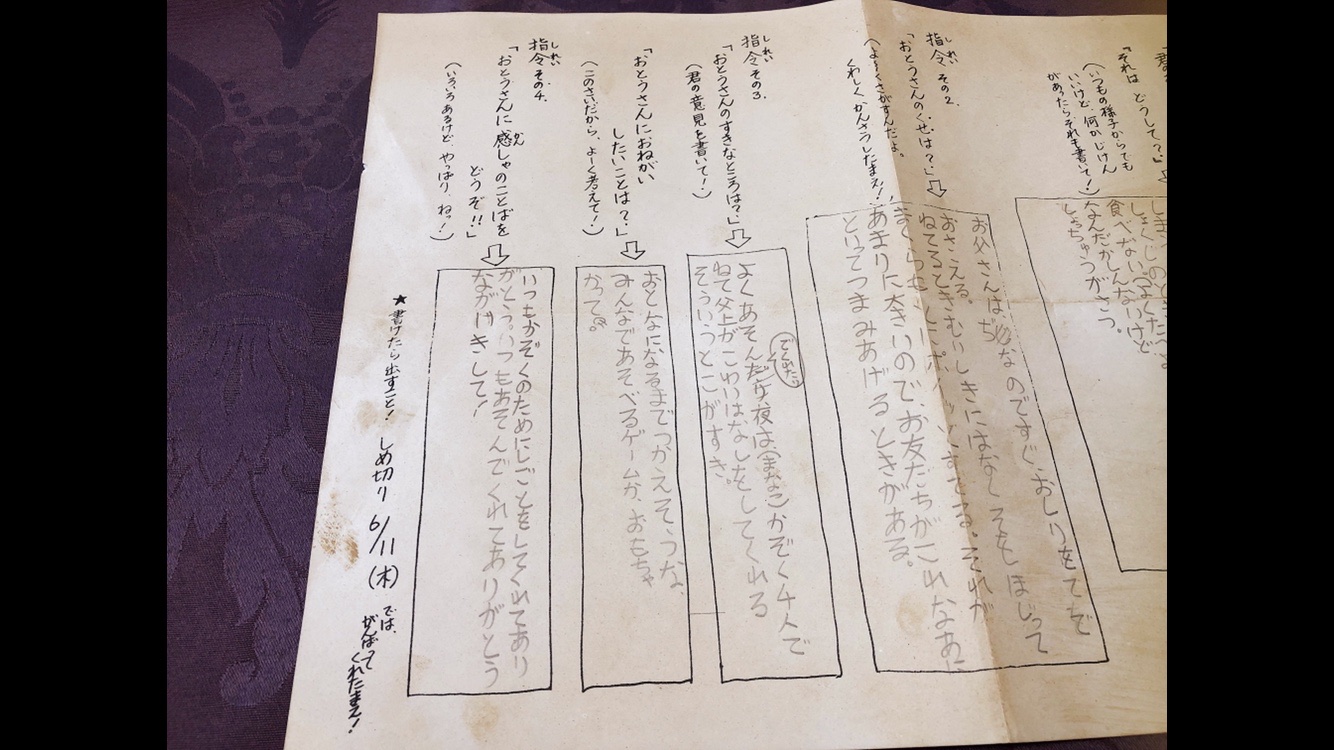 「それは どうして?」
(いつもの様子からでも
いいけど、何かじけん
があったらそれも書いて!)
しょくじのとき
食べない
なんだかしんないけど
しゃっちゅうがさつ。
指令 その2.
しれい
「おとうさんのくせは?」
(よーくさがすんだよ。
くわしくかんさつしたまえ!)
お父さんはぢなのですぐ、おしりをてで
おさえる。
ねてるときむいしきにはなくそをほじって
まくらもとにポイッとすてる。それが
あまりに大きいので、お友だちがこれなあに
といってつまみあげるときがある。
指令 その3.
しれい
「おとうさんのすきなところは?」
(君の意見を書いて!)
よくあそんでくれたっ
夜は、(まなこ)かぞく4人で
ねて父上がこわいはなしをしてくれる
そういうとこがすき。
「おとうさんにおねがい
したいことは?」
(このさいだから、よーく考えて!)
おとなになるまでつかえそうな、
みんなであそべるゲームか、おもちゃ
かって。
指令 その4.
しれい
「おとうさんに感しゃのことばを
かん
どうぞ!!」
(いろいろあるけど、やっぱり、ねっ!)
いつもかぞくのためにしごとをしてくれてあり
がとう。いつもあそんでくれてありがとう
ながいきして!
★書けたら出すこと! しめ切り 6/11(木) では、
がんばって
くれたまえ!